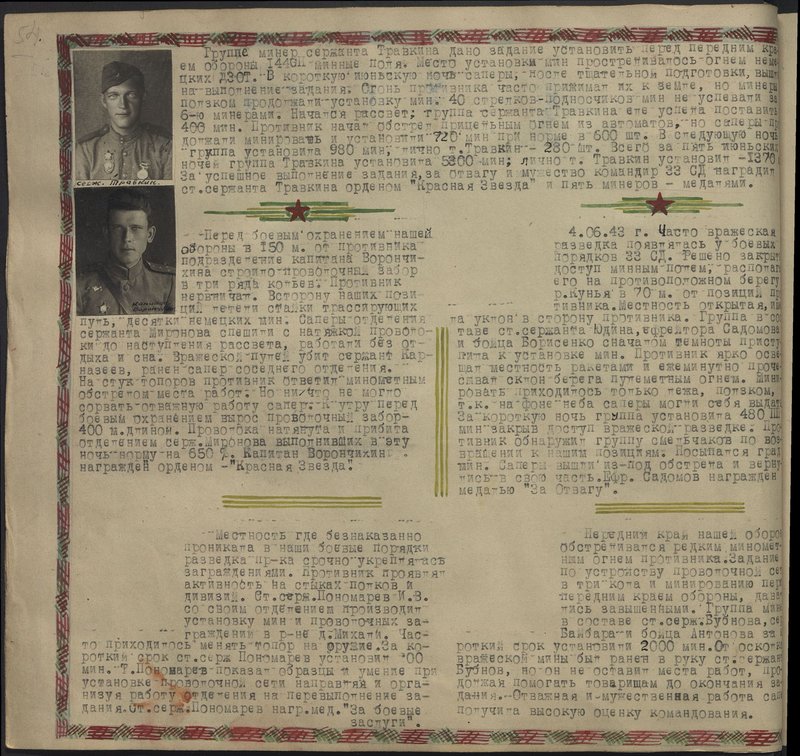 54.
Группе минер.сержанта Травкина дано задание установить перед передним кра-
ем обороны 144СП минные поля. Место установки мин простреливалось огнем неме-
цких ДЗОТ. В короткую июньскую ночь саперы, после тщательной подготовки, выш
на выполнение задания. Огонь противника часто прижимал их к земле, но минеры
ползком продолжали установку мин. 40 стрелков-подносчиков мин не успевали за
6-ю минерами. Начался рассвет, группа сержанта Травкина еле успела поставить
400 мин. Противник начал обстрел прицельным огнем из автоматов, но саперы пр
должали минировать и установили 720 мин при норме в 600 шт. В следующую ночь
группа установила 980 мин, лично т.Травкин - 280 шт. Всего за пять июньских
ночей группа Травкина установила 5300 мин; лично т. Травкин установил -1370
За успешное выполнение задания, за отвагу и мужество командир 33 СД наградил
ст.сержанта Травкина орденом "Красная Звезда" и пять минеров - медалями.
серж. Травкин.
Капитан
Ворончихин
Перед боевым охранением нашей
обороны в 150 м. от противника
подразделение капитана Ворончи-
хина строило проволочный забор
в три ряда кольев. Противник
нервничал. Всторону наших пози-
ций летели стайки трассирующих
пуль, десятки немецких мин. Саперы отделения
сержанта Миронова спешили с натяжкой проволо-
ки до наступления рассвета, работали без от-
дыха и сна. Вражеской пулей убит сержант Кар-
назеев, ранен сапер соседнего отделения.
На стук топоров противник ответил минометным
обстрелом места работ. Но ничто не могло
сорвать отважную работу сапер. К утру перед
боевым охранением вырос проволочный забор-
400 м.длиной. Проволока натянута и прибита
отделением серж.Миронова выполнивших в эту
ночь норму на 650 %. Капитан Ворончихин
награжден орденом -"Красная Звезда".
4.06.43 г. Часто вражеская
разведка появлялась у боевых
порядков 33 СД. Решено закрыт
доступ минным полем, располаг
его на противоположном берегу
р.Кунья в 70 м. от позиций пр
тивника. Местность открытая, им
ла уклон в сторону противника. Группа в сос
таве ст.сержанта Юдина, ефрейтора Садомова
и бойца Борисенко сначалом темноты присту
пила к установке мин. Противник ярко осве
щал местность ракетами и ежеминутно проче
сывал склон берега пулеметным огнем. Мини
ровать приходилось только лежа, ползком,
т.к. на фоне неба саперы могли себя выдат
За короткую ночь группа установила 480 ПП
мин закрыв доступ вражеской разведке. Про
тивник обнаружил группу смельчаков по воз
вращении к нашим позициям. Посыпался град
мин. Саперы вышли из-под обстрела и верну
лись в свою часть. Ефр. Садомов награжден
медалью "За Отвагу".
Местность где безнаказанно
проникала в наши боевые порядки
разведка пр-ка срочно укреплялась
заграждениями. Противник проявлял
активность на стыках полков и
дивизий. Ст.серж.Пономарев И.В.
со своим отделением производил
установку мин и проволочных за-
граждений в р-не д.Михали. Час-
то приходилось менять топор на оружие. За ко-
роткий срок ст.серж Пономарев установил 00
мин. Т.Пономарев показал образцы и умение при
установке проволочной сети направляя и орга-
низуя работу отделения на перевыполнение за-
дания. Ст.серж.Пономарев нагр.мед."За боевые
заслуги".
Передний край нашей оборон
обстреливался редким миномет-
ным огнем противника. Задание
по устройству проволочной сет
в три кола и минированию пере
передним краем обороны, дава
лись завышенными. Группа мин
в составе ст.серж.Бубнова, се
Байбара и бойца Антонова за
роткий срок установили 2000 мин. От оскол
вражеской мины был ранен в руку ст.сержан
Бубнов, но он не оставил места работ, про-
должая помогать товарищам до окончания за
дания.--Отважная и мужественная работа сап
получила высокую оценку командования.